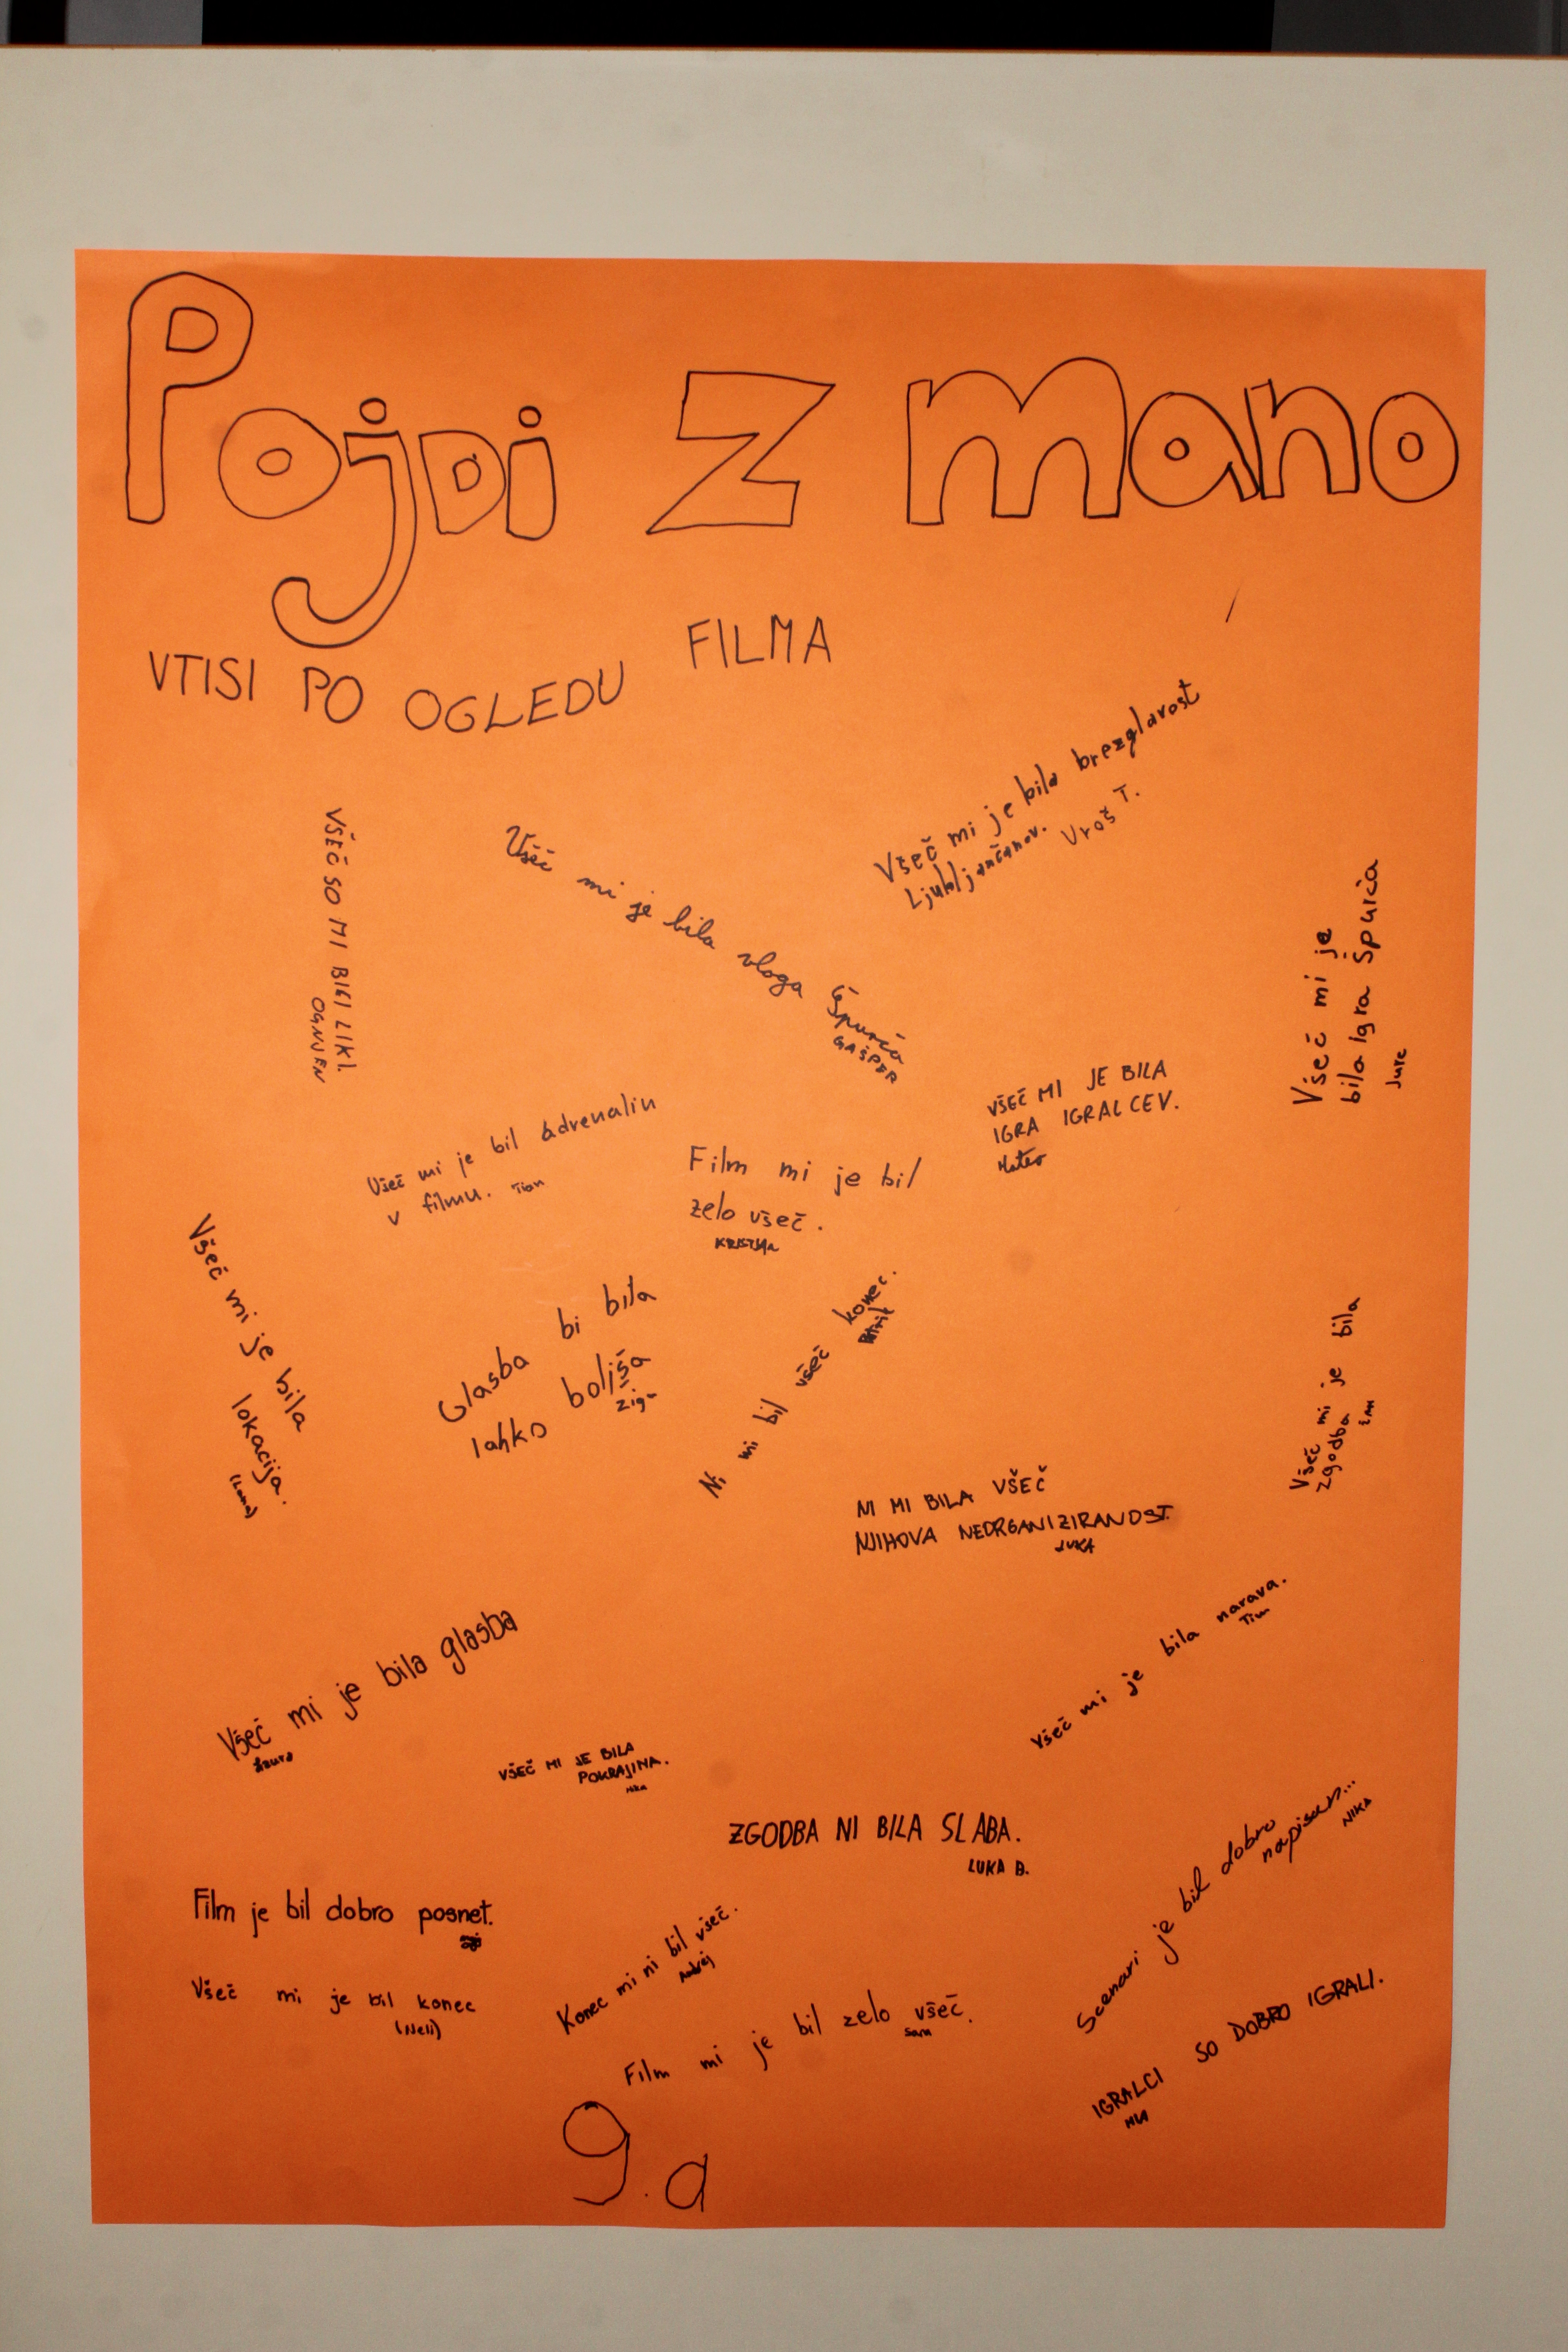 Pojdi z mano
VTISI PO OGLEDU FILMA
Všeč mi je bila brezglavost
Ljubljančanov. Uroš T.
VŠEČ SO MI BILI LIKI.
OGNJEN
Všeč mi je bila vloga Špurća
GAŠPER
Všeč mi je
bila igra Špurća
Jure
VŠEČ MI JE BILA
IGRA IGRALCEV.
Matev
Všeč mi je bil adrenalin
v filmu. Tian
Film mi je bil
zelo všeč.
Všeč mi je bila
lokacija.
Glasba bi bila
lahko boljša
Žiga
Ni mi bil všeč konec.
Patrik
Všeč mi je bila
zgodba
NI MI BILA VŠEČ
NJIHOVA NEORGANIZIRANOST.
LUKA
Všeč mi je bila narava.
Tim
Všeč mi je bila glasba
VŠEČ MI JE BILA
POKRAJINA.
Nika
ZGODBA NI BILA SLABA.
LUKA B.
Scenari je bil dobro
napisan...
NIKA
Film je bil dobro posnet.
Konec mi ni bil všeč.
Andrej
Všeč mi je bil konec
(Neli)
Film mi je bil zelo všeč.
Sara
IGRALCI SO DOBRO IGRALI.
9.a